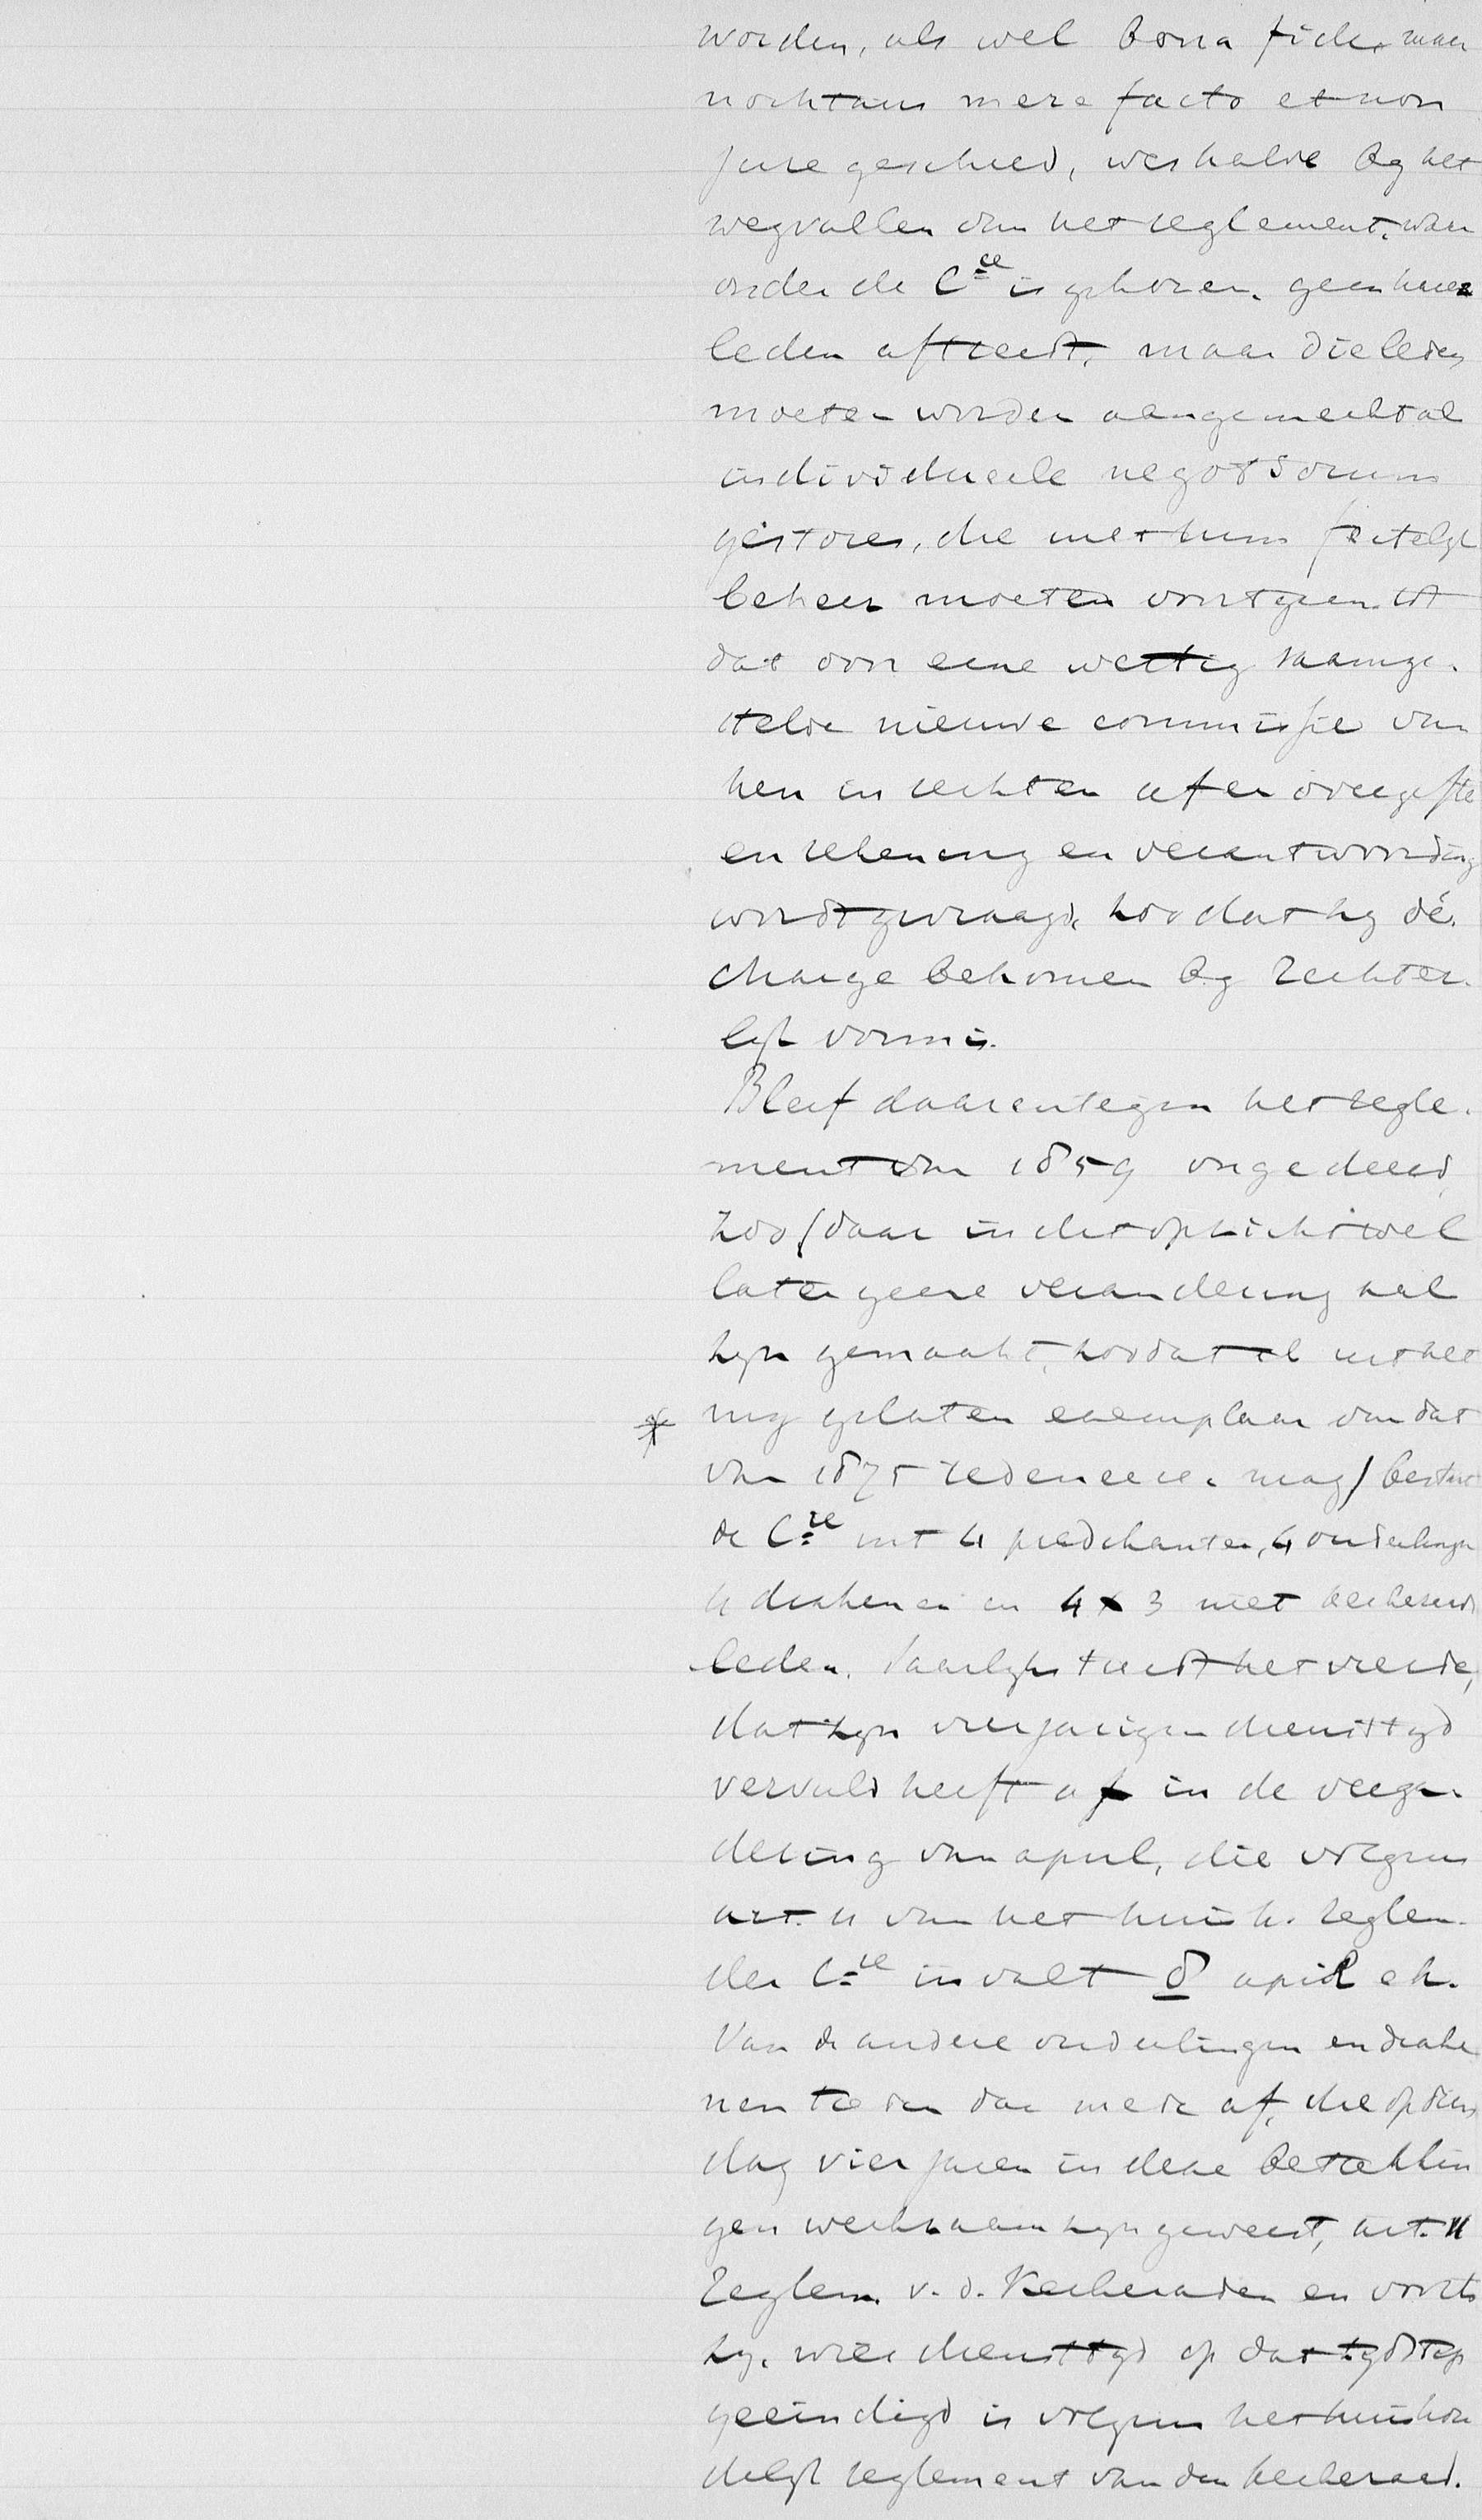 worden, als wel bona fide, maar
nochtans mere facto et non
jure geschied, weshalve by het
wegvallen van het reglement, waar
onder de C<sup>ie</sup> is gekozen, geen harer
leden aftreedt, maar die leden
moeten worden aangemerkt als
individueele negotiorum
gestores, die met hun feitelyk
beheer moeten voortgaan tot
dat voor eene wettig saamge-
stelde nieuwe commissie van
hen in rechten af en overgifte
en rekening en verantwoording
wordt gevraagd, zoodat zy dé-
charge bekomen by rechter-
lyk vonnis.
Bleef daarentegen het regle-
ment van 1859 ongedeerd,
zoo (daar in dit opzicht wel
later geene verandering zal
zyn gemaakt, zoodat ik uit het
* my gelaten exemplaar van dat
van 1875 redeneeren mag) bestaat
de C<sup>ie</sup> uit 4 predikanten, 4 ouderlingen
4 diakenen en 4 x 3 niet kerkeraads
leden. Jaarlyks treedt het vierde,
dat zyn vierjarigen diensttyd
vervuld heeft af in de verga-
dering van april, die volgens
art. 11 van het huish. reglem.
der C<sup>ie</sup> invalt 8 april ek.
Van de andere ouderlingen en diake
nen treden dan mede af, die op dien
dag vier jaren in deze betrekkin
gen werkzaam zyn geweest, art. 11
Reglem. v. d. Kerkeraden en voorts
zy, wier diensttyd op dat tydstip
geëindigd is volgens het huishou
delyk reglement van den kerkeraad.